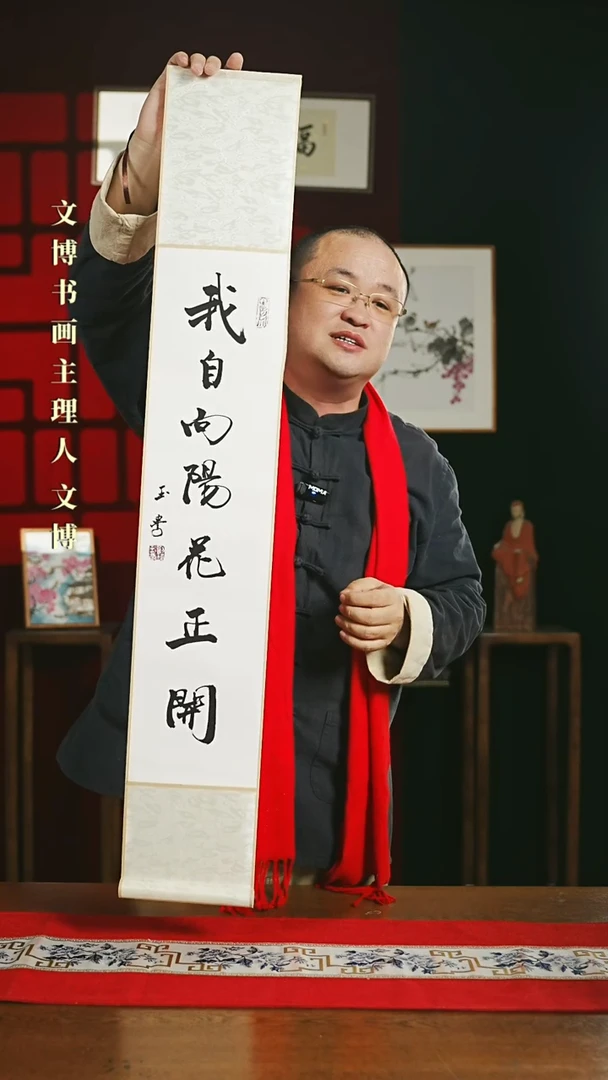 我自向陽花正開
文博书画主理人文博
福